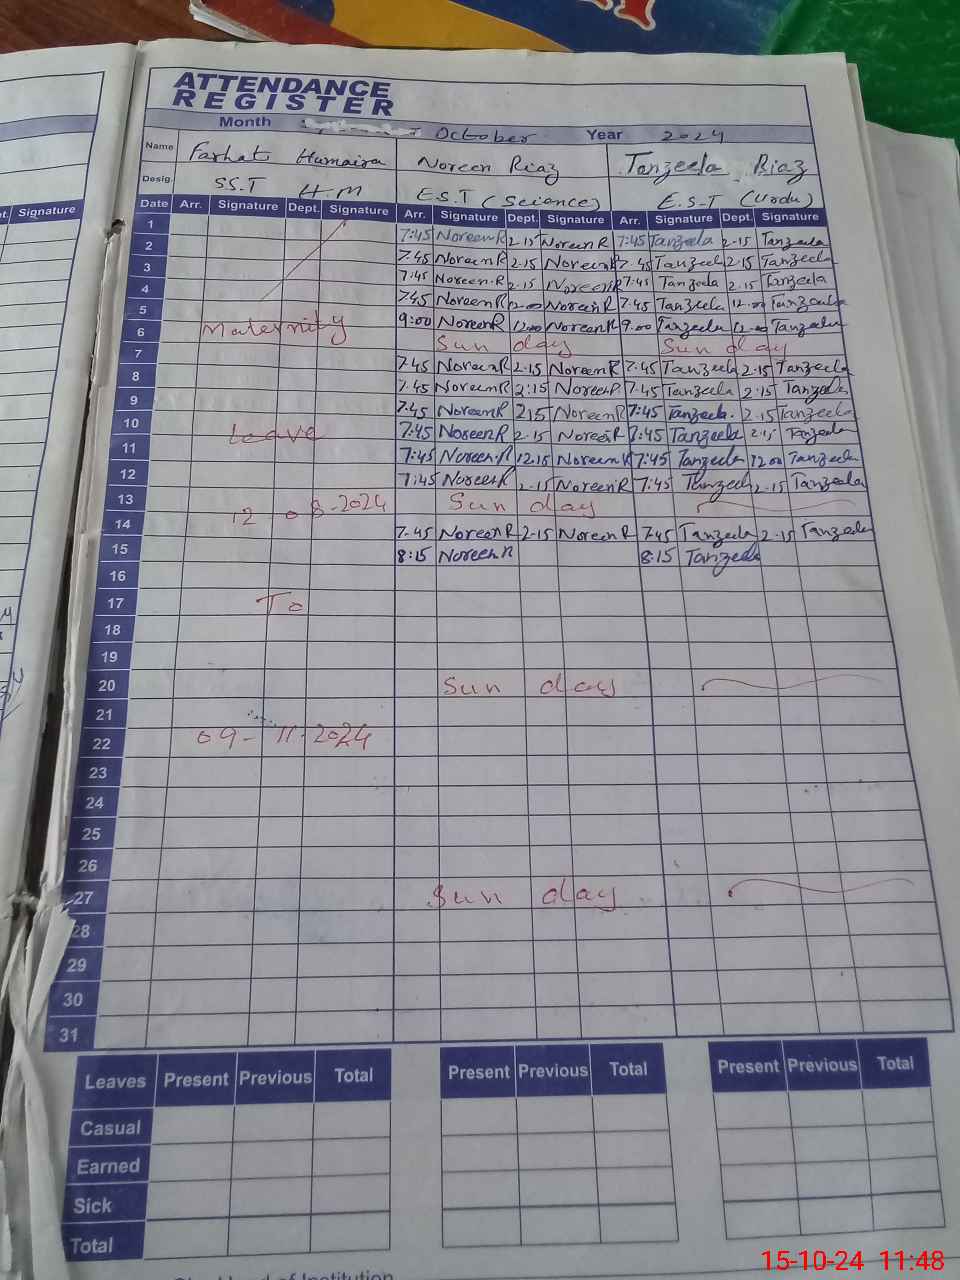 ATTENDANCE
REGISTER
Month October Year 2024
Name Farhat Humaira Noreen Riaz Tanzeela Riaz
Desig. S.S.T H.M E.S.T (Science) E.S.T (Urdu)
Signature
Date Arr. Signature Dept. Signature Arr. Signature Dept. Signature Arr. Signature Dept. Signature
1 7:45 NoreenR 2.15 NoreenR 7:45 Tanzeela 2.15 Tanzeela
2 7.45 NoreenR 2.15 NoreenR 7.45 Tanzeela 2.15 Tanzeela
3 7:45 Noreen.R 2.15 NoreenR 7:45 Tanzeela 2.15 Tanzeela
4 7.45 NoreenR 12.00 NoreenR 7.45 Tanzeela 12.00 Tanzeela
5 9:00 NoreenR 12.00 NoreenR 9.00 Tanzeela 12.00 Tanzeela
6 Maternity Sun day Sun day
7 7.45 NoreenR 2.15 NoreenR 7.45 Tanzeela 2.15 Tanzeela
8 7.45 NoreenR 2:15 NoreenR 7.45 Tanzeela 2.15 Tanzeela
9 7:45 NoreenR 2.15 NoreenR 7:45 Tanzeela. 2.15 Tanzeela
10 Leave 7:45 NoreenR 2.15 NoreenR 7:45 Tanzeela 2.15 Tanzeela
11 7:45 Noreen.R 12.15 NoreenR 7:45 Tanzeela 12.00 Tanzeela
12 7:45 NoreenR 2.15 NoreenR 7:45 Tanzeela 2.15 Tanzeela
13 12-08-2024 Sun day
14 7.45 NoreenR 2.15 NoreenR 7.45 Tanzeela 2.15 Tanzeela
15 8:15 NoreenR 8:15 Tanzeela
16
17 To
18
19
20 Sun day
21
22 09-11-2024
23
24
25
26
27 Sun day
28
29
30
31
Leaves Present Previous Total Present Previous Total Present Previous Total
Casual
Earned
Sick
Total
15-10-24 11:48